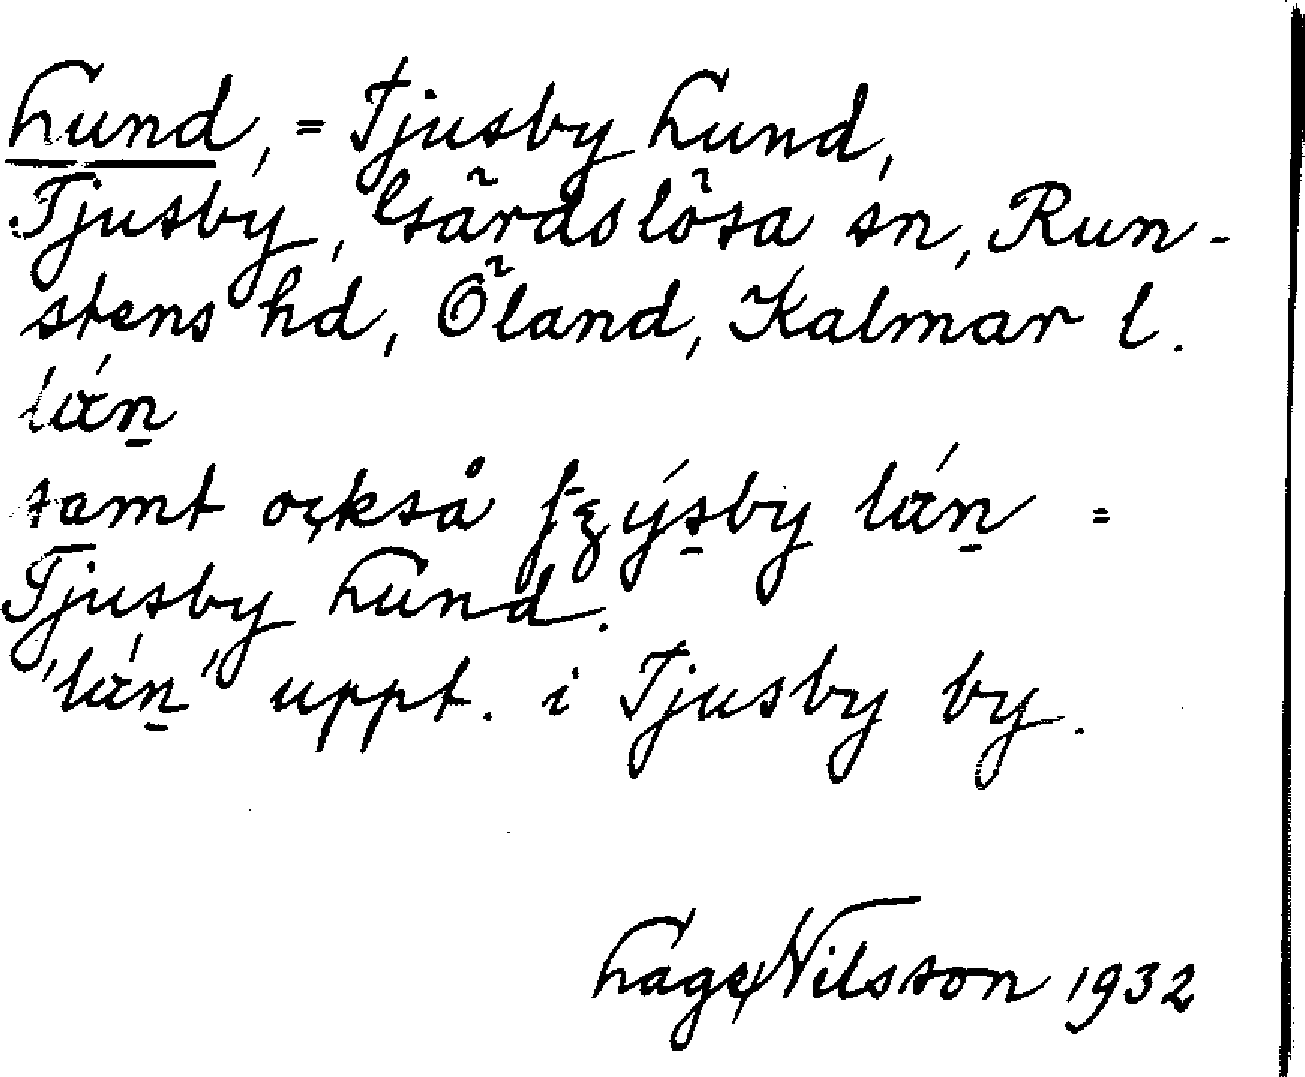 Lund, = Tjusby Lund,
Tjusby, Gärdslösa sn, Run-
stens hd, Öland, Kalmar l.
lán̲
samt också ʃʒýs̲by lán̲ =
Tjusby Lund.
'lán̲' uppt. i Tjusby by.
Lage Nilsson 1932